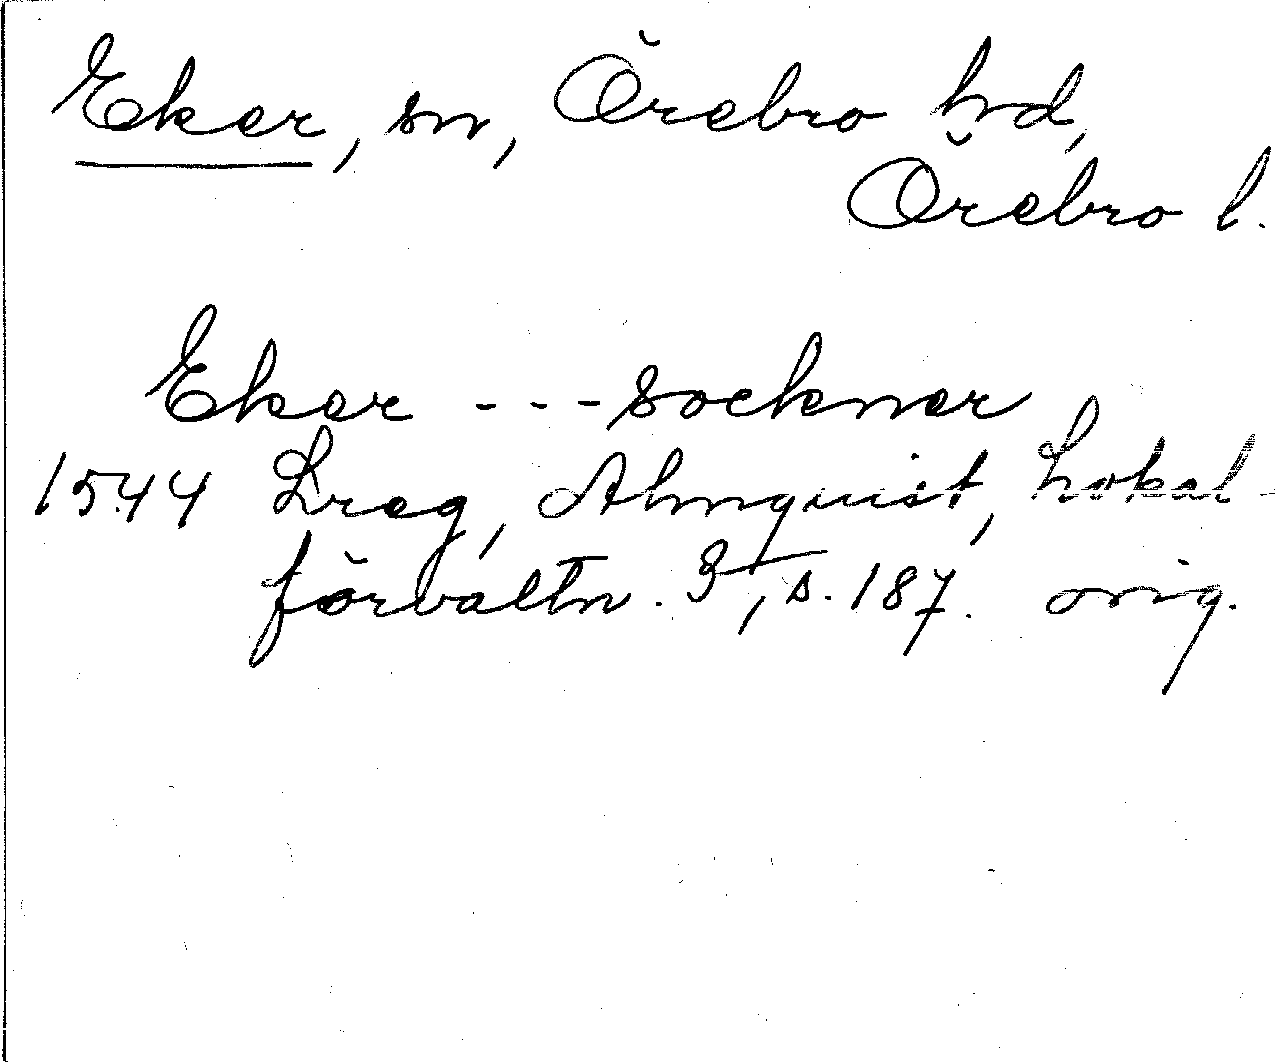 Eker, sn, Örebro hd,
Örebro l.
Eker - - - sockner
1544 Lreg, Almquist, Lokal-
förvaltn. 3, s. 187. orig.